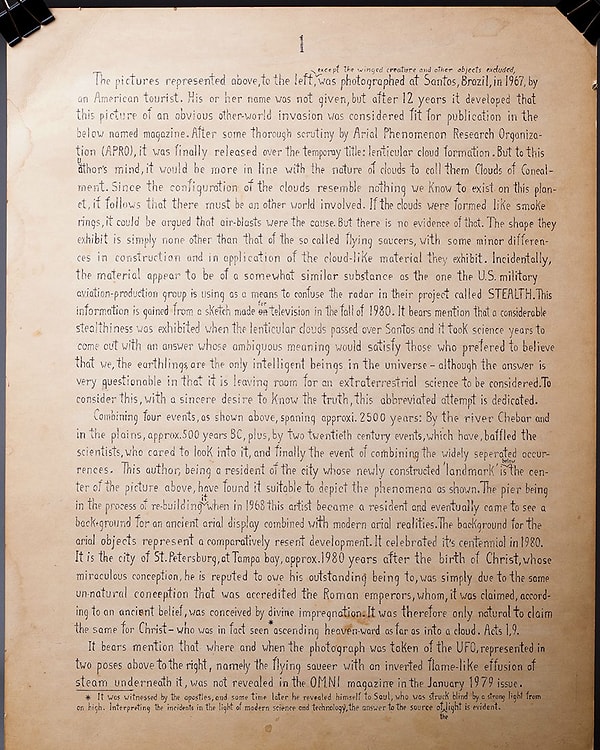 1
except the winged creature and other objects excluded,
The pictures represented above, to the left, was photographed at Santos, Brazil, in 1967, by
an American tourist. His or her name was not given, but after 12 years it developed that
this picture of an obvious other-world invasion was considered fit for publication in the
below named magazine. After some thorough scrutiny by Arial Phenomenon Research Orgoniza-
tion (APRO), it was finally released over the temporay title: lenticular cloud formation. But to this
author's mind, it would be more in line with the nature of clouds to call them Clouds of Conceal-
ment. Since the configuration of the clouds resemble nothing we know to exist on this plan-
et, it follows that there must be an other world involved. If the clouds were formed like smoke
rings, it could be argued that air-blasts were the cause. But there is no evidence of that. The shape they
exhibit is simply none other than that of the so called flying saucers, with some minor differen-
ces in construction and in application of the cloud-like material they exhibit. Incidentally,
the material appear to be of a somewhat similar substance as the one the U.S. military
aviation-production group is using as a means to confuse the radar in their project called STEALTH. This
information is gained from a sketch made for television in the fall of 1980. It bears mention that a considerable
stealthiness was exhibited when the lenticular clouds passed over Santos and it took science years to
come out with an answer whose ambiguous meaning would satisfy those who prefered to believe
that we, the earthlings, are the only intelligent beings in the universe – although the answer is
very questionable in that it is leaving room for an extraterrestrial science to be considered. To
consider this, with a sincere desire to know the truth, this abbreviated attempt is dedicated.
Combining four events, as shown above, spaning approxi. 2500 years: By the river Chebar and
in the plains, approx. 500 years BC, plus, by two twentieth century events, which have, baffled the
scientists, who cared to look into it, and finally the event of combining the widely seperated occur-
rences. This author, being a resident of the city whose newly constructed 'landmark' is below the cen-
ter of the picture above, have found it suitable to depict the phenomena as shown. The pier being
in the process of re-building it when in 1968 this artist became a resident and eventually came to see a
back-ground for an ancient arial display combined with modern arial realities. The background for the
arial objects represent a comparatively resent development. It celebrated it's centennial in 1980.
It is the city of St. Petersburg, at Tampa bay, approx. 1980 years after the birth of Christ, whose
miraculous conception, he is reputed to owe his outstanding being to, was simply due to the same
un-natural conception that was accredited the Roman emperors, whom, it was claimed, accord-
ing to an ancient belief, was conceived by divine impregnation. It was therefore only natural to claim
the same for Christ – who was in fact seen * ascending heaven-ward as far as into a cloud. Acts 1,9.
It bears mention that where and when the photograph was token of the UFO, represented in
two poses above to the right, namely the flying saucer with an inverted flame-like effusion of
steam underneath it, was not revealed in the OMNI magazine in the January 1979 issue.
* It was witnessed by the apostles, and some time later he revealed himself to Saul, who was struck blind by a strong light from
on high. Interpreting the incidents in the light of modern science and technology, the answer to the source of the light is evident.